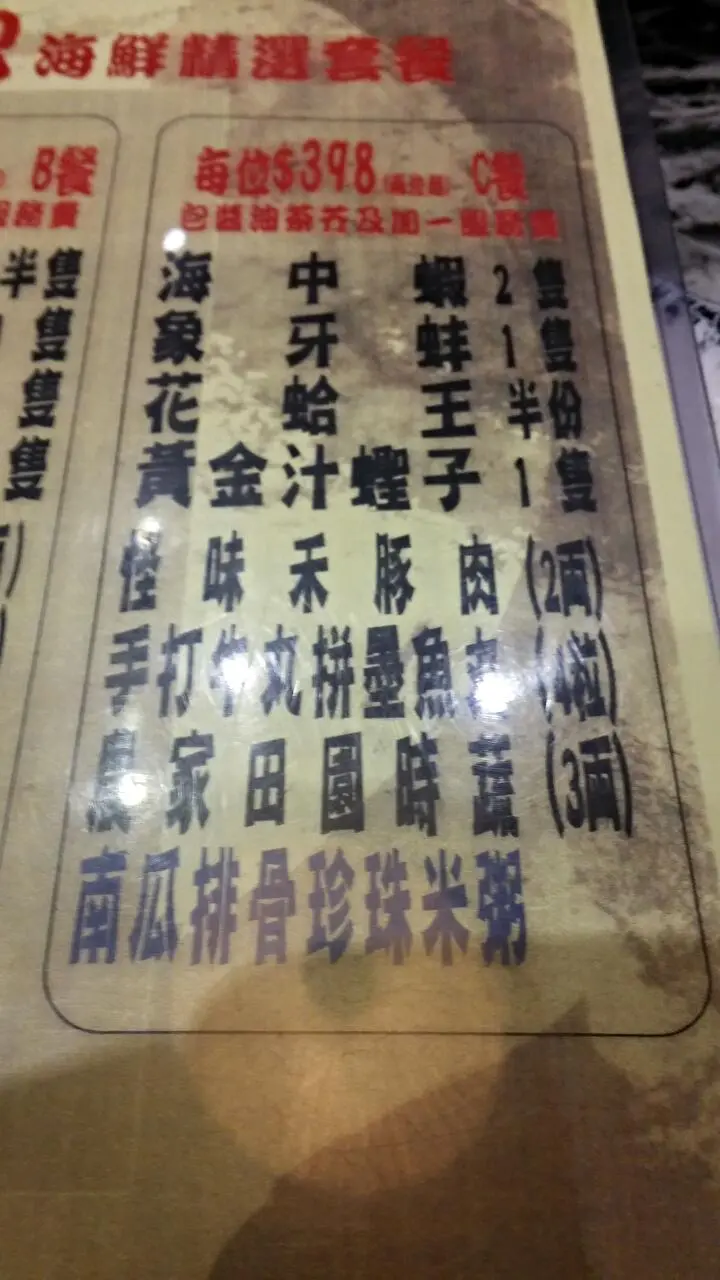 海鮮精選套餐
B餐
半隻
隻
隻
隻
每位$398 C餐
包醬油茶芥及加一服務費
海中蝦 2隻
象牙蚌 1隻
花蛤王 半份
黃金汁蟶子 1隻
怪味禾豚肉 (2両)
手打牛丸拼墨魚丸 (4粒)
農家田園時蔬 (3両)
南瓜排骨珍珠米粥